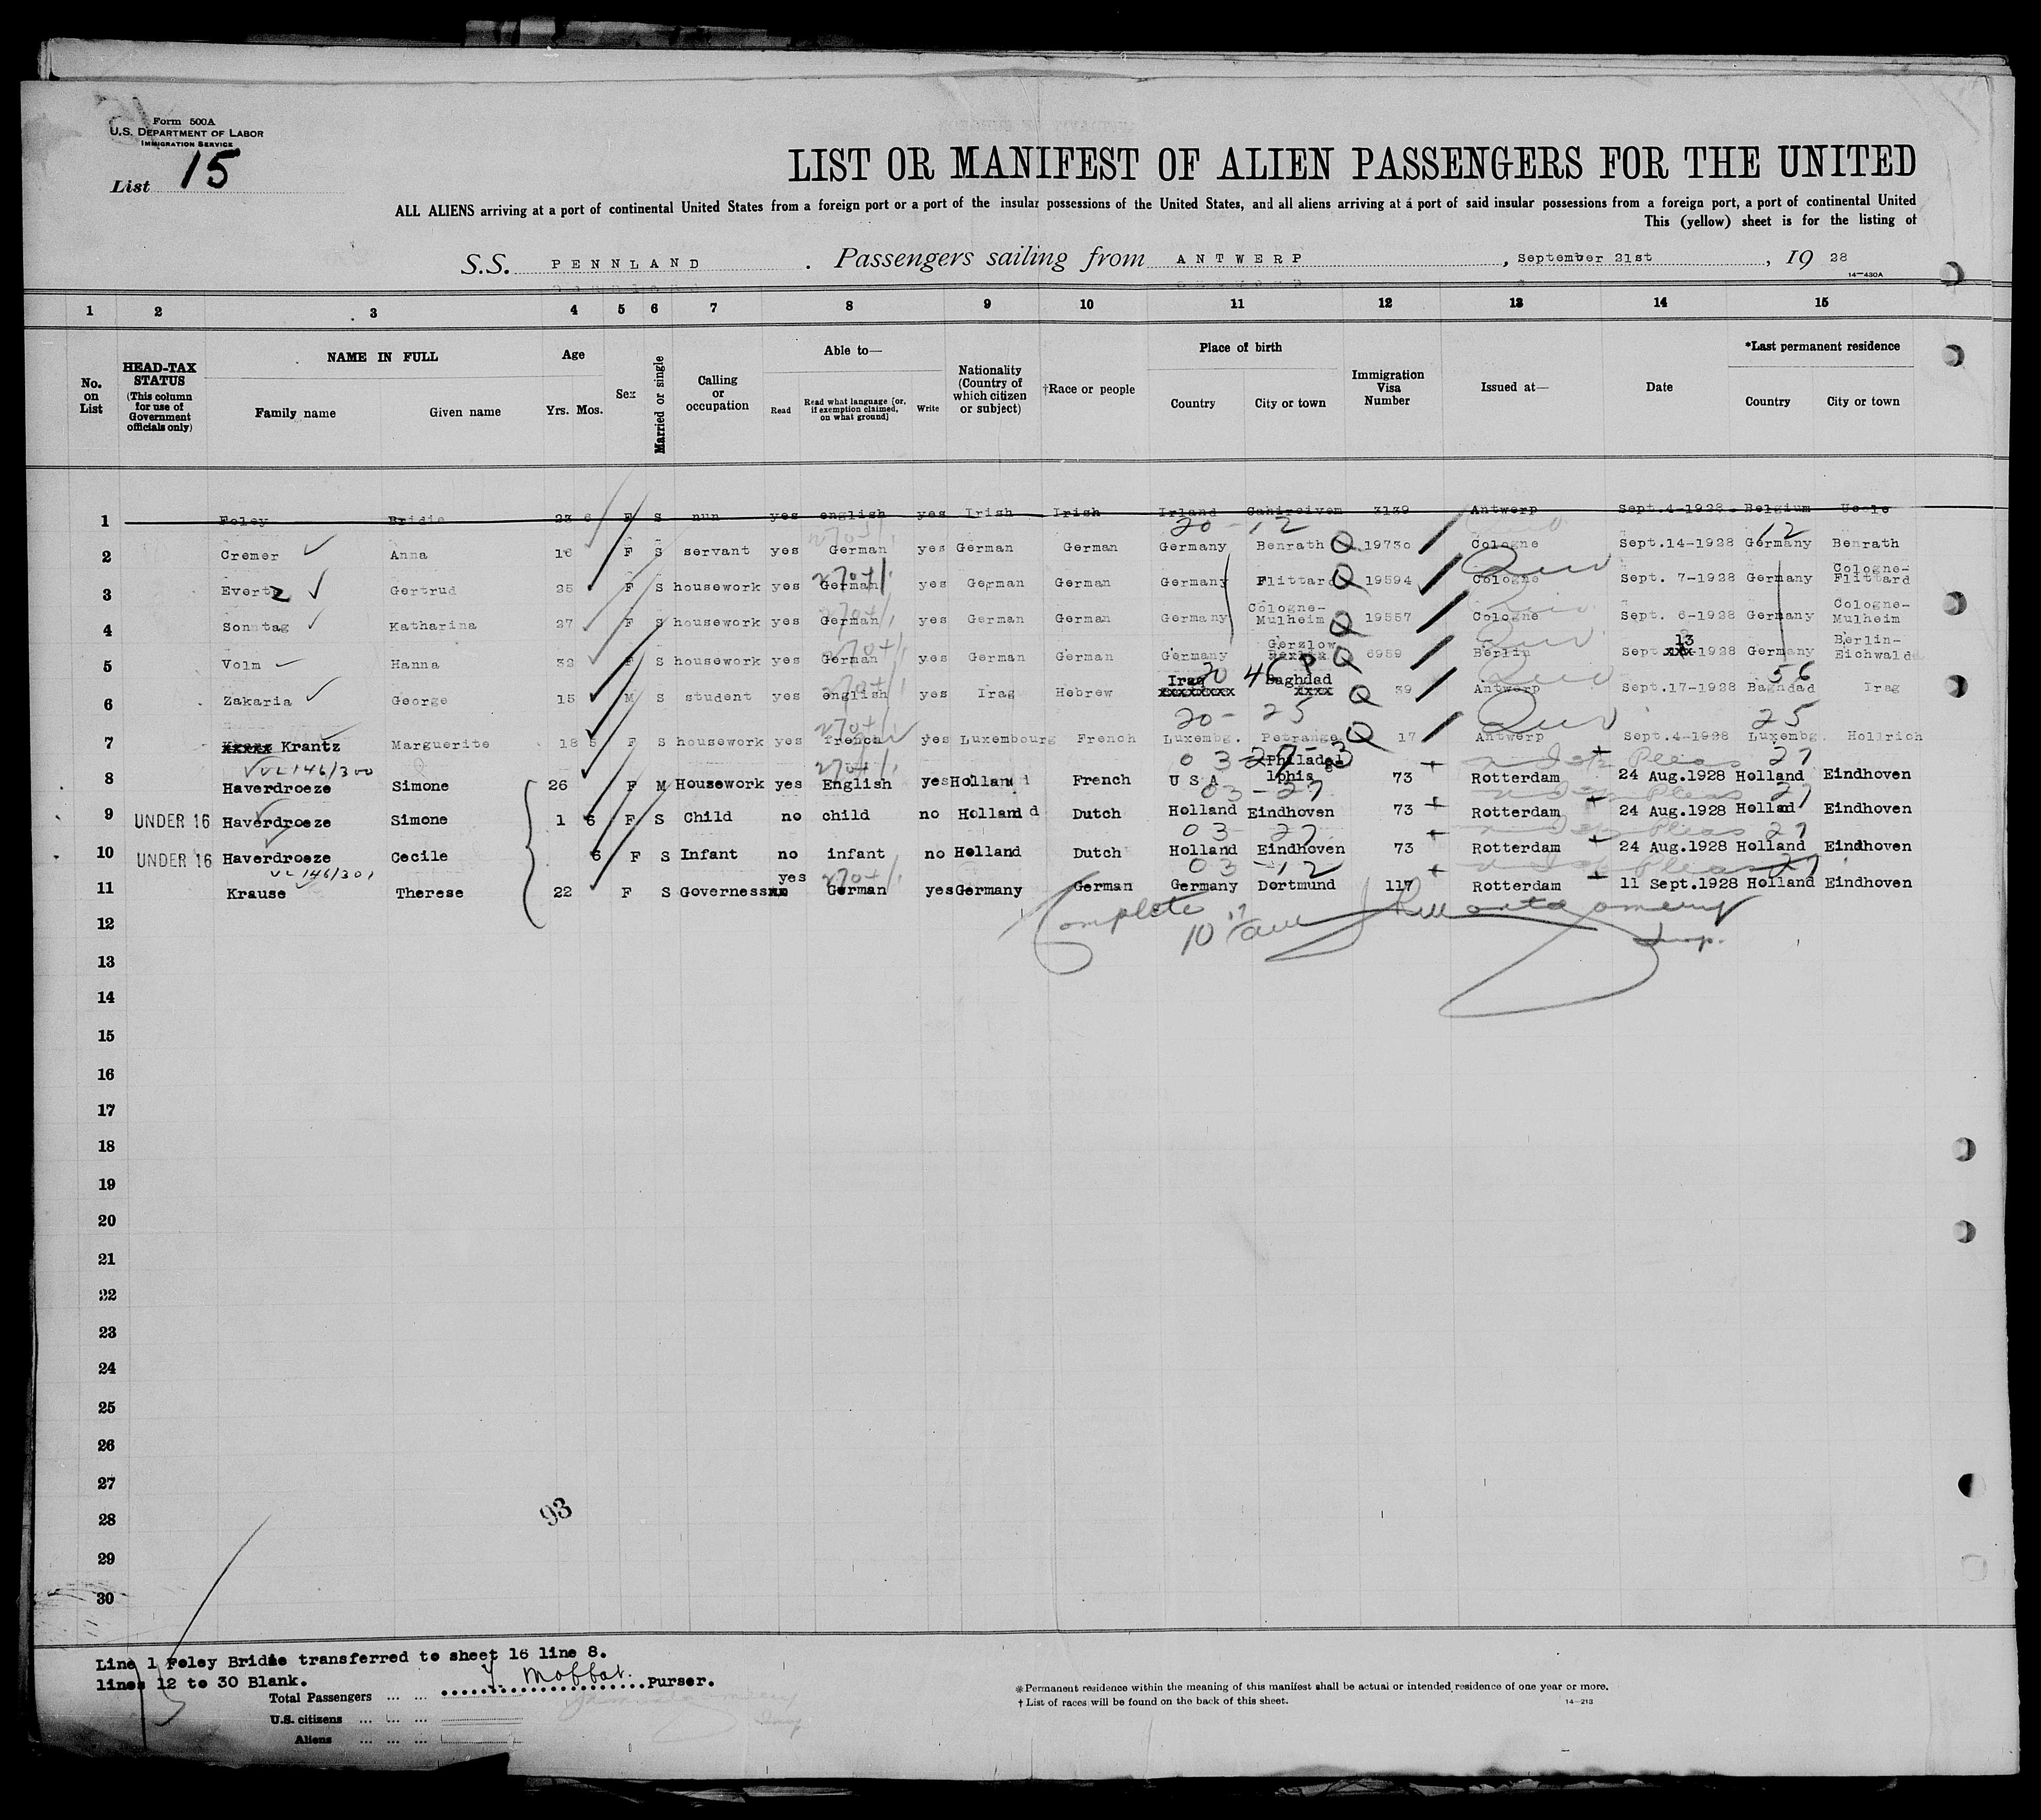 Form 500A
U.S. DEPARTMENT OF LABOR
IMMIGRATION SERVICE
List 15
LIST OR MANIFEST OF ALIEN PASSENGERS FOR THE UNITED
ALL ALIENS arriving at a port of continental United States from a foreign port or a port of the insular possessions of the United States, and all aliens arriving at a port of said insular possessions from a foreign port, a port of continental United
This (yellow) sheet is for the listing of
S.S. PENNLAND . Passengers sailing from ANTWERP , September 21st , 19 28
14—430A
1 2 3 4 5 6 7 8 9 10 11 12 13 14 15
No. on List
HEAD-TAX STATUS (This column for use of Government officials only)
NAME IN FULL
Family name Given name
Age
Yrs. Mos.
Sex
Married or single
Calling or occupation
Able to—
Read Read what language [or, if exemption claimed, on what ground] Write
Nationality (Country of which citizen or subject)
†Race or people
Place of birth
Country City or town
Immigration Visa Number
Issued at—
Date
*Last permanent residence
Country City or town
1 Foley Bridie 23 6 F S nun yes english yes Irish Irish Irland Cahirciven 3139 Antwerp Sept.4-1928 Belgium Uccle
20-12 12
2 Cremer Anna 16 F S servant yes German yes German German Germany Benrath Q 19730 Cologne Sept.14-1928 Germany Benrath
3 Evertz Gertrud 25 F S housework yes German yes German German Germany Flittard Q 19594 Cologne Sept. 7-1928 Germany Cologne-Flittard
4 Sonntag Katharina 27 F S housework yes German yes German German Germany Cologne-Mulheim Q 19557 Cologne Sept. 6-1928 Germany Cologne-Mulheim
5 Volm Hanna 32 F S housework yes German yes German German Germany Gerzlow Q 6959 Berlin Sept 13 -1928 Germany Berlin-Eichwald
6 Zakaria George 15 M S student yes english yes Iraq Hebrew Iraq Baghdad Q 39 Antwerp Sept.17-1928 Baghdad Iraq
20- 25 25
7 Krantz Marguerite 18 5 F S housework yes french yes Luxembourg French Luxembg. Petrange Q 17 Antwerp Sept.4-1928 Luxembg. Hollrich
VL 146/300
8 Haverdroeze Simone 26 F M Housework yes English yes Holland French U S A Philadelphia 73 Rotterdam 24 Aug.1928 Holland Eindhoven
03-27 27
9 UNDER 16 Haverdroeze Simone 1 6 F S Child no child no Holland Dutch Holland Eindhoven 73 Rotterdam 24 Aug.1928 Holland Eindhoven
03 27 27
10 UNDER 16 Haverdroeze Cecile 6 F S Infant no infant no Holland Dutch Holland Eindhoven 73 Rotterdam 24 Aug.1928 Holland Eindhoven
VL 146/301 03-12 27
11 Krause Therese 22 F S Governess yes German yes Germany German Germany Dortmund 117 Rotterdam 11 Sept.1928 Holland Eindhoven
12 Complete
Insp.
13
14
15
16
17
18
19
20
21
22
23
24
25
26
27
28
29
30
93
Line 1 Foley Bridie transferred to sheet 16 line 8.
lines 12 to 30 Blank.
Moffat. Purser.
Total Passengers ... ...
U.S. citizens ... ... ...
Aliens ... ... ...
*Permanent residence within the meaning of this manifest shall be actual or intended residence of one year or more.
† List of races will be found on the back of this sheet.
14—213